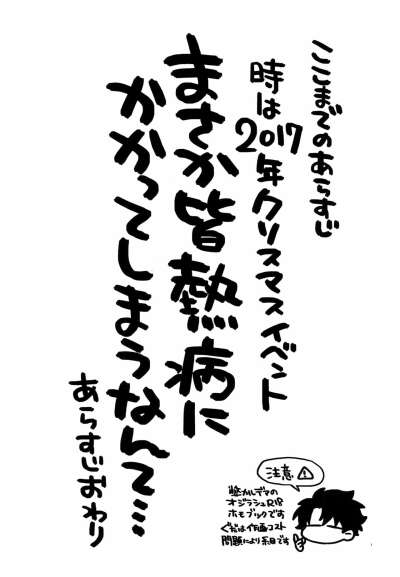 ここまでのあらすじ
時は
2017
年クリスマスイベント
まさか皆熱病に
かかってしまうなんて…
あらすじおわり
注意⚠
オジラシュRR
ホモブックです
ぐだは作画コスト
問題により糸目です